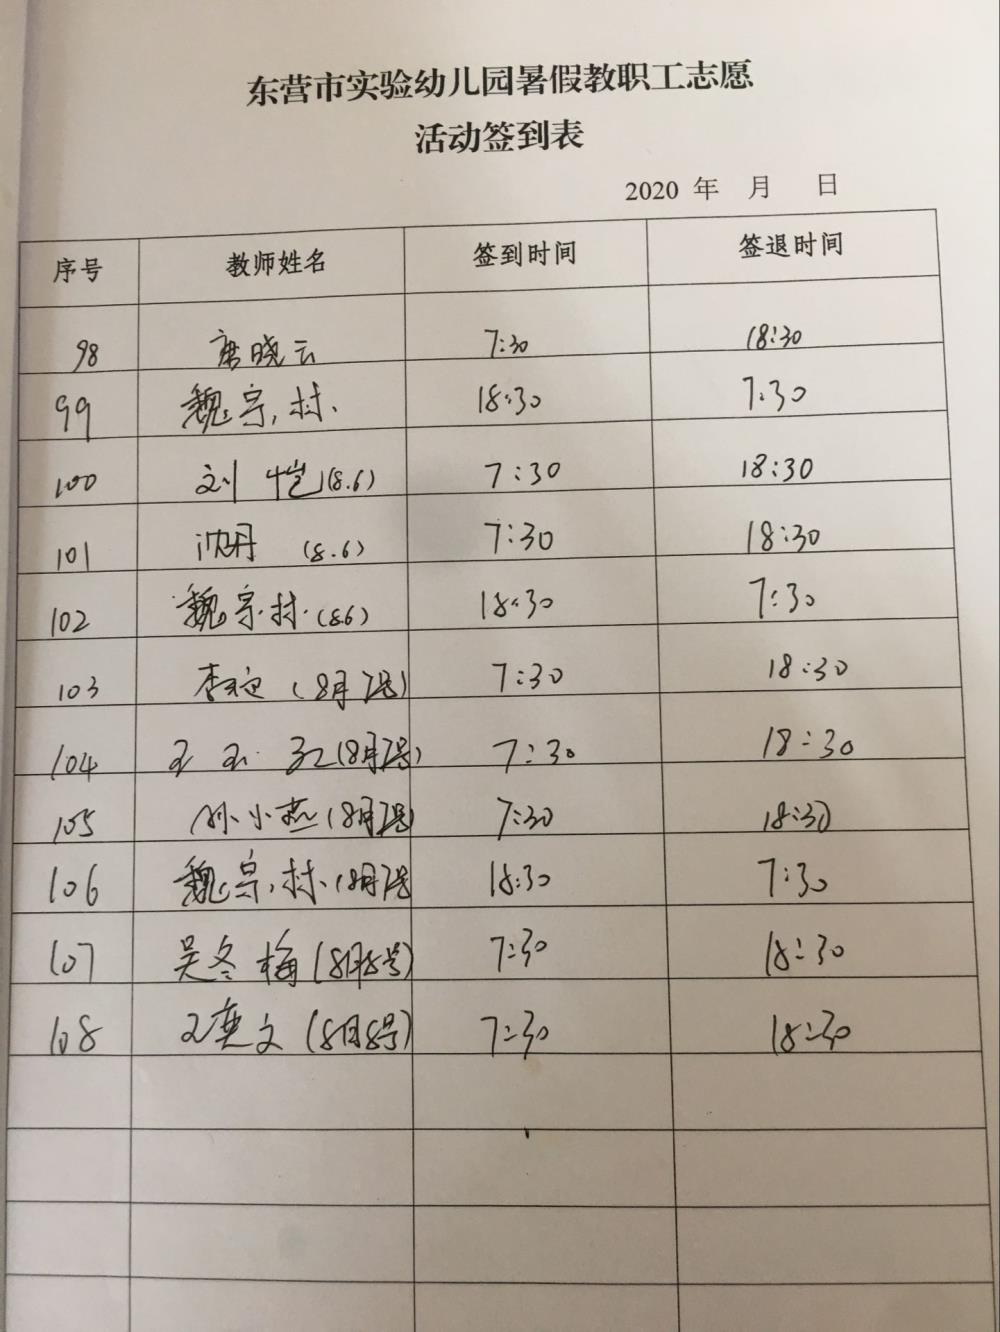 东营市实验幼儿园暑假教职工志愿
活动签到表
2020 年 月 日
序号 教师姓名 签到时间 签退时间
98 唐晓云 7:30 18:30
99 魏宗村 18:30 7:30
100 刘恺(8.6) 7:30 18:30
101 沈丹 (8.6) 7:30 18:30
102 魏宗村(8.6) 18:30 7:30
103 李 (8月7号) 7:30 18:30
104 王玉红(8月7号) 7:30 18:30
105 孙小燕(8月7号) 7:30 18:30
106 魏宗村(8月7号 18:30 7:30
107 吴冬梅(8月8号) 7:30 18:30
108 文(8月8号) 7:30 18:30